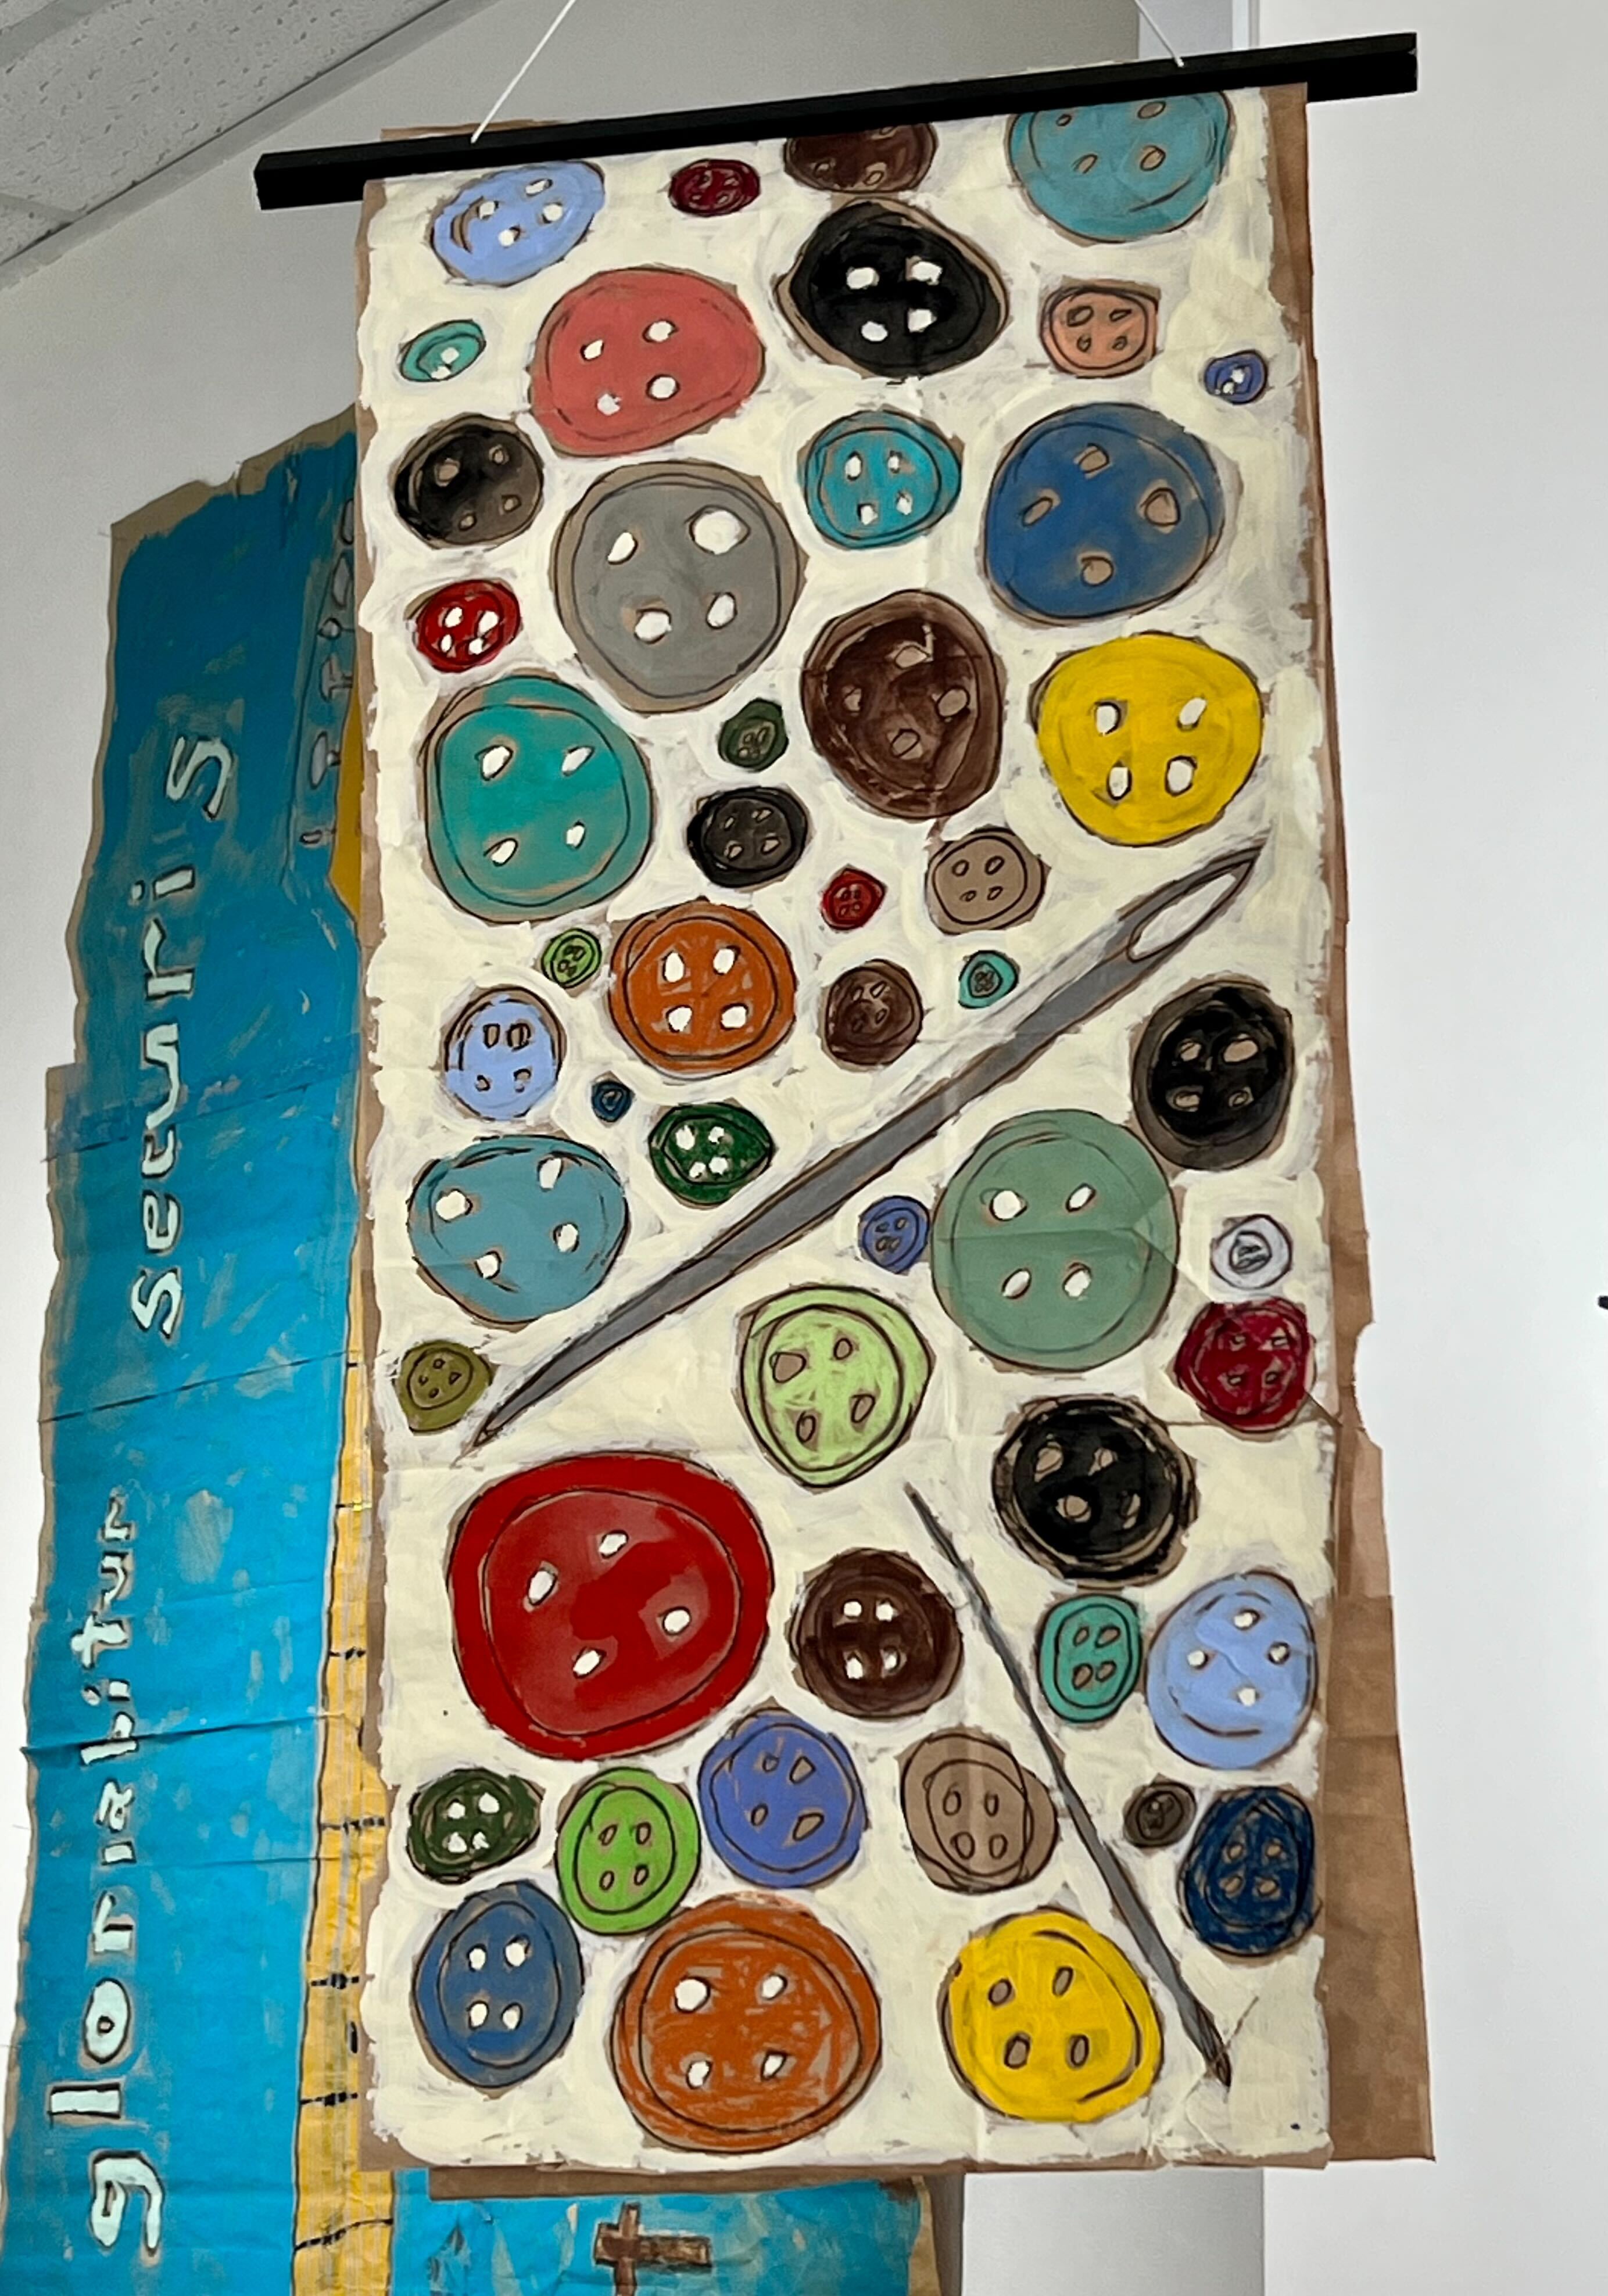 gloriabitur securis